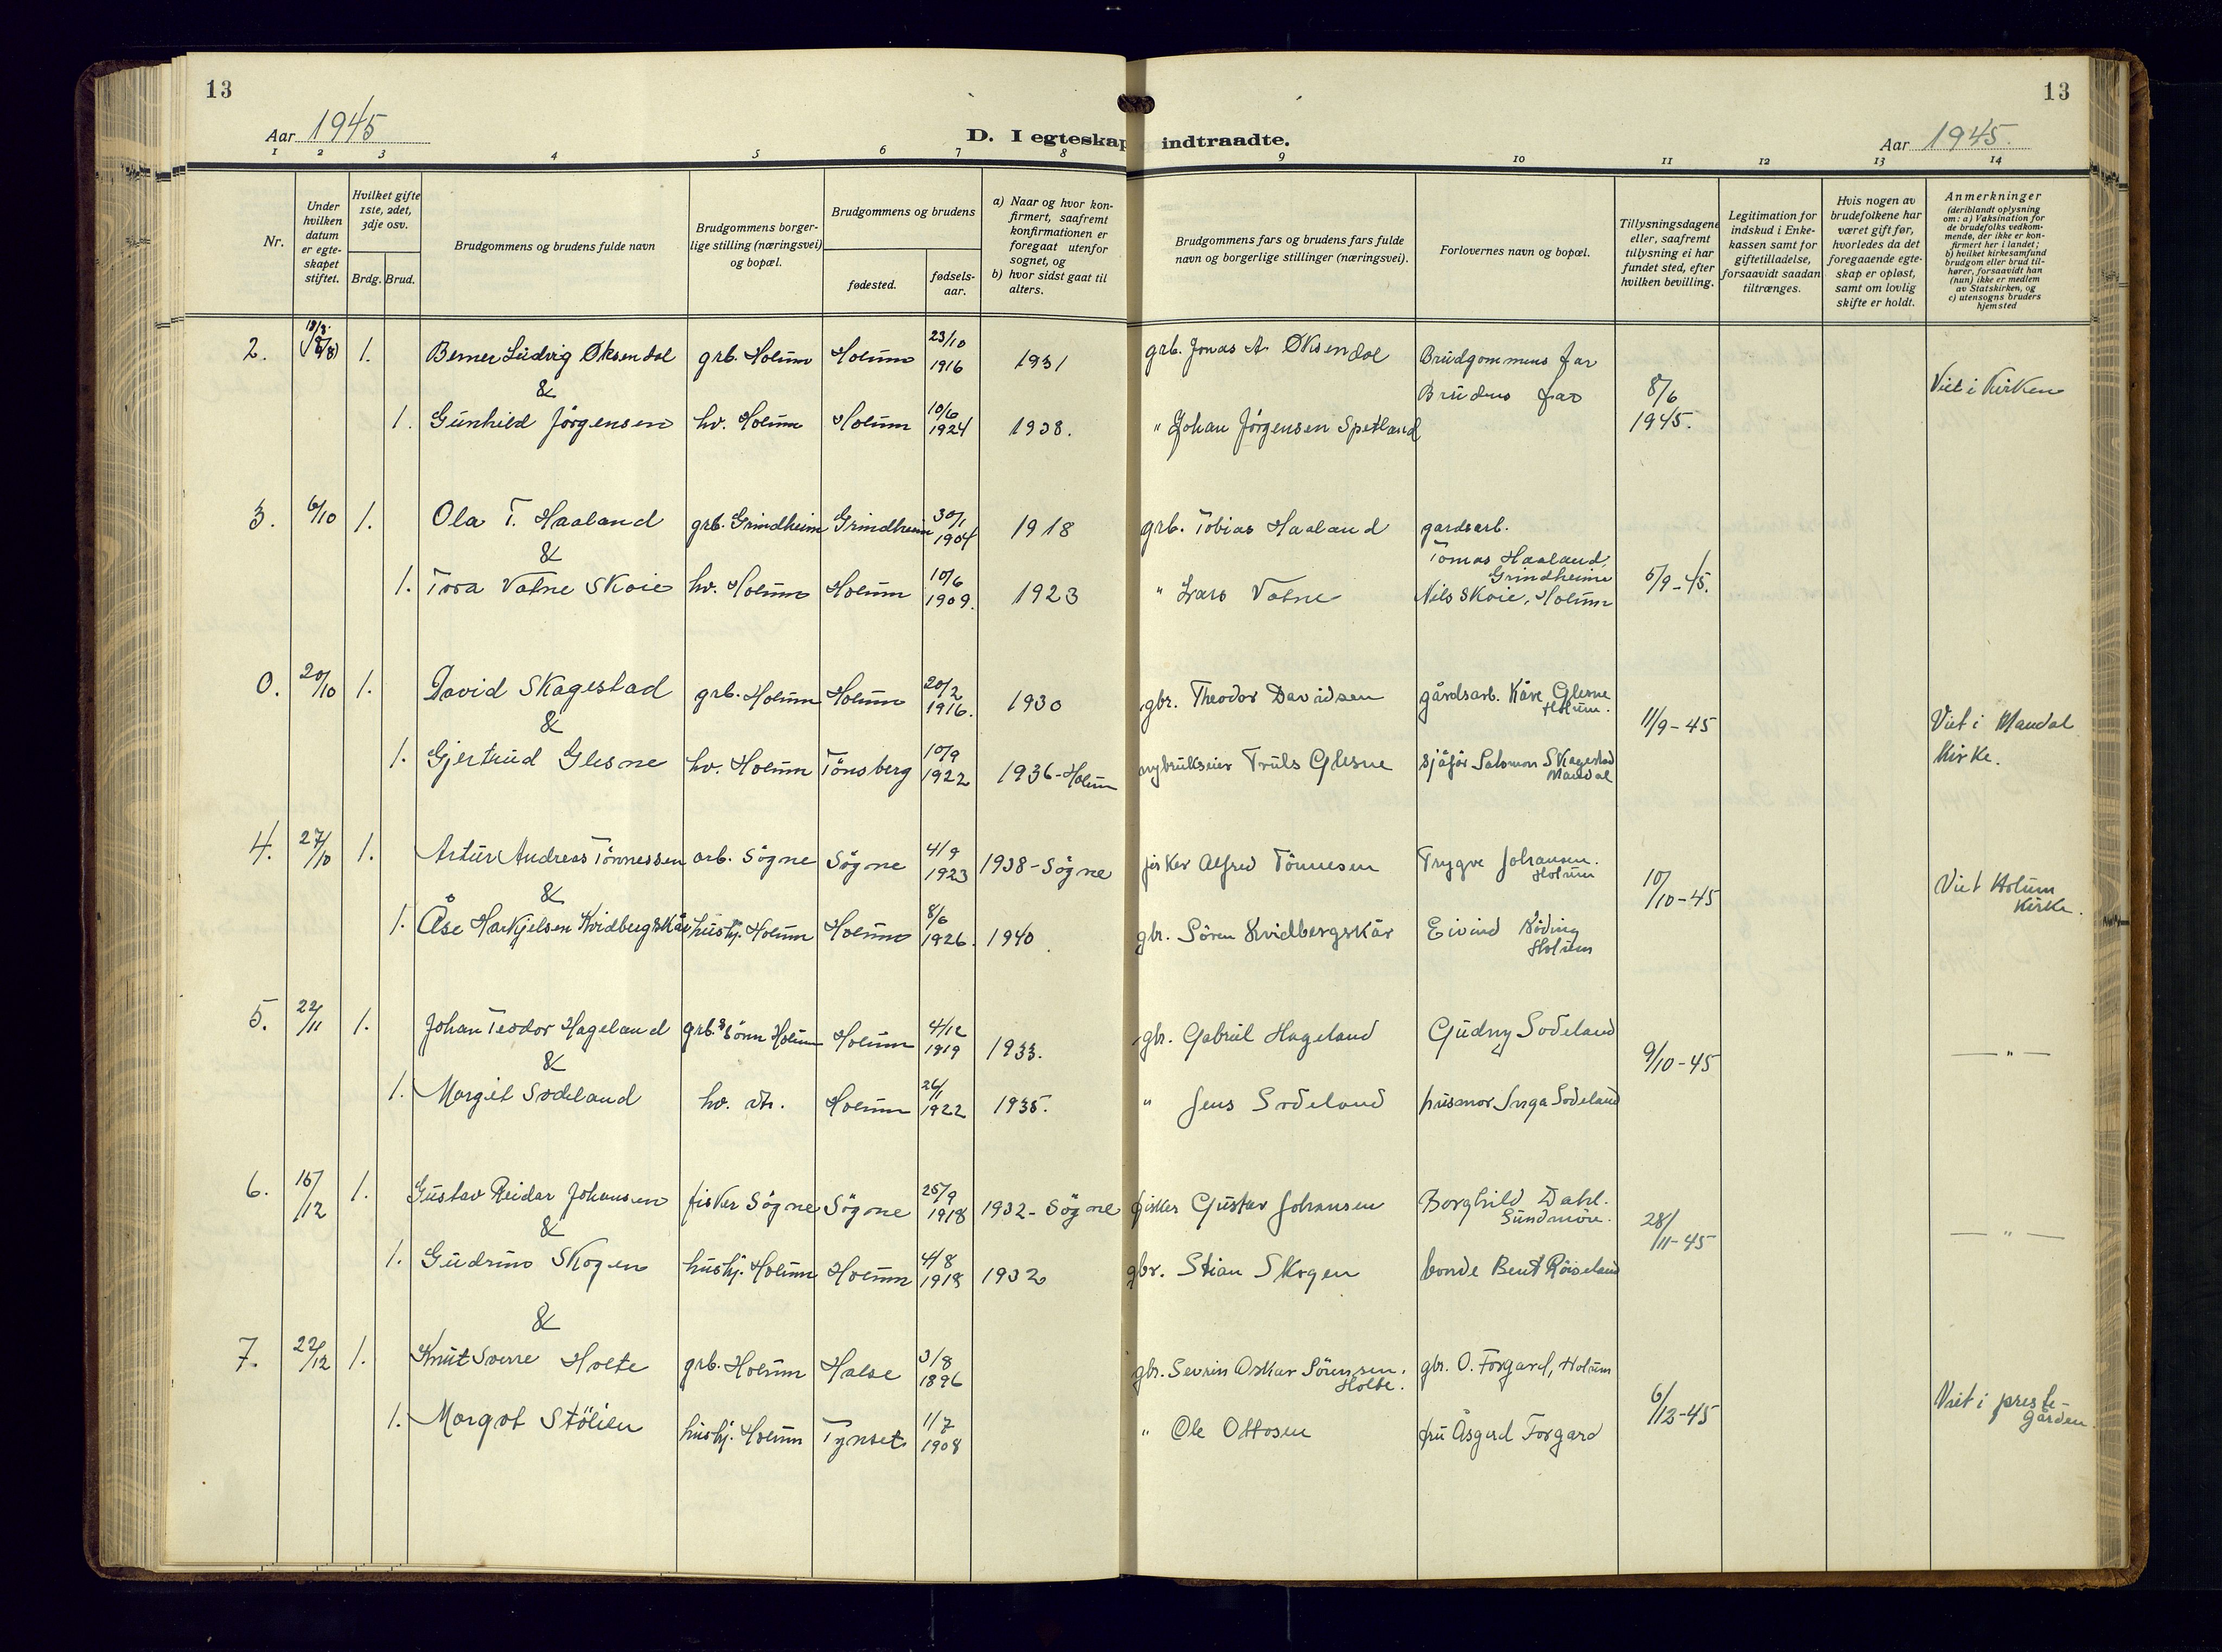 13
13
Aar 1945
D. I egteskap indtraadte.
Aar 1945.
1 2 3 4 5 6 7 8 9 10 11 12 13 14
Nr.
Under hvilken datum er egte-skapet stiftet.
Hvilket gifte 1ste, 2det, 3dje osv.
Brdg. Brud.
Brudgommens og brudens fulde navn
Brudgommens borger-lige stilling (næringsvei) og bopæl.
Brudgommens og brudens
fødested.
fødsels-aar.
a) Naar og hvor kon-firmert, saafremt konfirmationen er foregaat utenfor sognet, og
b) hvor sidst gaat til alters.
Brudgommens fars og brudens fars fulde navn og borgerlige stillinger (næringsvei).
Forlovernes navn og bopæl.
Tillysningsdagene eller, saafremt tillysning ei har fundet sted, efter hvilken bevilling.
Legitimation for indskud i Enke-kassen samt for giftetilladelse, forsaavidt saadan tiltrænges.
Hvis nogen av brudefolkene har været gift før, hvorledes da det foregaaende egte-skap er opløst, samt om lovlig skifte er holdt.
Anmerkninger
(deriblandt oplysning om: a) Vaksination for de brudefolks vedkom-mende, der ikke er kon-firmert her i landet;
b) hvilket kirkesamfund brudgom eller brud til-hører, forsaavidt han (hun) ikke er medlem av Statskirken, og
c) utensogns bruders hjemsted
2. 1. Berner Ludvig Øksendal grb. Holum Holum 23/10 1916 1931 grb. Jonas A. Øksendal Brudgommens far
&
Brudens far 8/6 1945. Viet i Kirken
1. Gunhild Jörgensen hv. Holum Holum 10/6 1924 1938. " Johan Jörgensen Spetland
3. 6/10 1. Ola T. Haaland grb. Grindheim Grindheim 30/1 1904 1918 grb. Tobias Haaland gardsarb.
&
Tomas Haaland, Grindheim 5/9-45.
1. Tora Vatne Skoie hv. Holum Holum 10/6 1909. 1923 " Lars Vatne Nils Skoie, Holum
0. 20/10 1. David Skagestad grb. Holum Holum 20/2 1916. 1930 gbr. Theodor Davidsen gårdsarb. Kåre Glesne Holum.
&
11/9-45 Viet i Mandal Kirke.
1. Gjertrud Glesne hv. Holum Tönsberg 10/9 1922 1936-Holum nybrukseier Truls Glesne sjåfør Salomon Skagestad Mandal
4. 27/10 1. Artur Andreas Tönnessen arb. Sögne Sögne 4/9 1923 1938-Sögne fisker Alfred Tönnesen Trygve Johansen. Holum
&
10/10-45 Viet Holum Kirke.
1. Åse Kvidbergskår hushj. Holum Holum 8/6 1926. 1940. gbr. Sören Kvidbergskår Eivind Nöding Holum
5. 22/11 1. Johan Teodor Hageland grb.s sönn Holum Holum 4/12 1919 1933. gbr. Gabriel Hageland Gudny Sodeland
&
9/10-45 — " —
1. Margit Sodeland hv. Holum 26/1 1922 1935. " Jens Sodeland husmor Inga Sodeland
6. 15/12 1. Gustav Reidar Johansen fisker Sögne Sögne 25/9 1918 1932-Sögne fisker Gustav Johansen Borghild Dahl. Sundmöre.
&
28/11-45 — " —
1. Gudrun Skogen hushj. Holum Holum 4/8 1918 1932 gbr. Stian Skogen bonde Bent Röiseland
&
7. 22/12 1. Knut Sverre Holte grb. Holum Halse 3/8 1896 gbr. Sevrin Oskar Sörensen. Holte. gbr. O. Forgard, Holum
6/12-45 Viet i preste-gården.
1. Margot Stölien hushj. Holum Tynset 1/7 1908 " Ole Ottosen fru Åsgerd Forgard